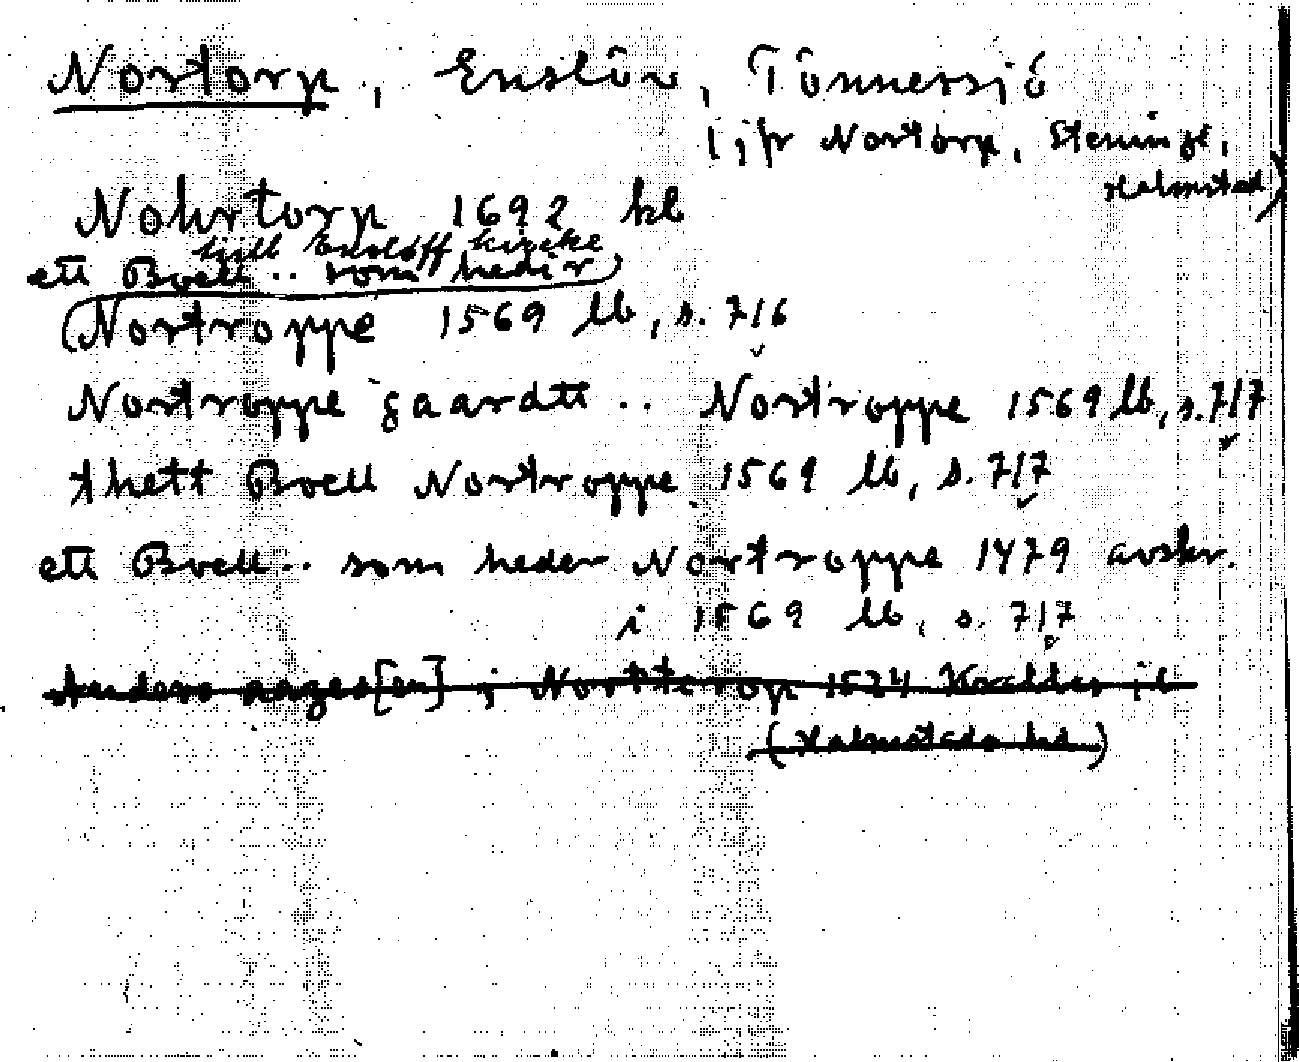 Nortorp, Enslöv, Tönnersjö
(jfr Nortorp, Steninge,
Halmstad)
Nohrtorp 1692 kl
till Ensloff kircke
ett Boell .. som hedir
(Nortroppe 1569 lb, s. 716
Nortroppe gaardtt .. Nortroppe 1569 lb, s. 717
thett Boell Nortroppe 1569 lb, s. 717
ett Boell .. som heder Nortroppe 1479 avskr.
i 1569 lb, s. 717
aages[en] j Nortterop 1524
(Halmstads hd)